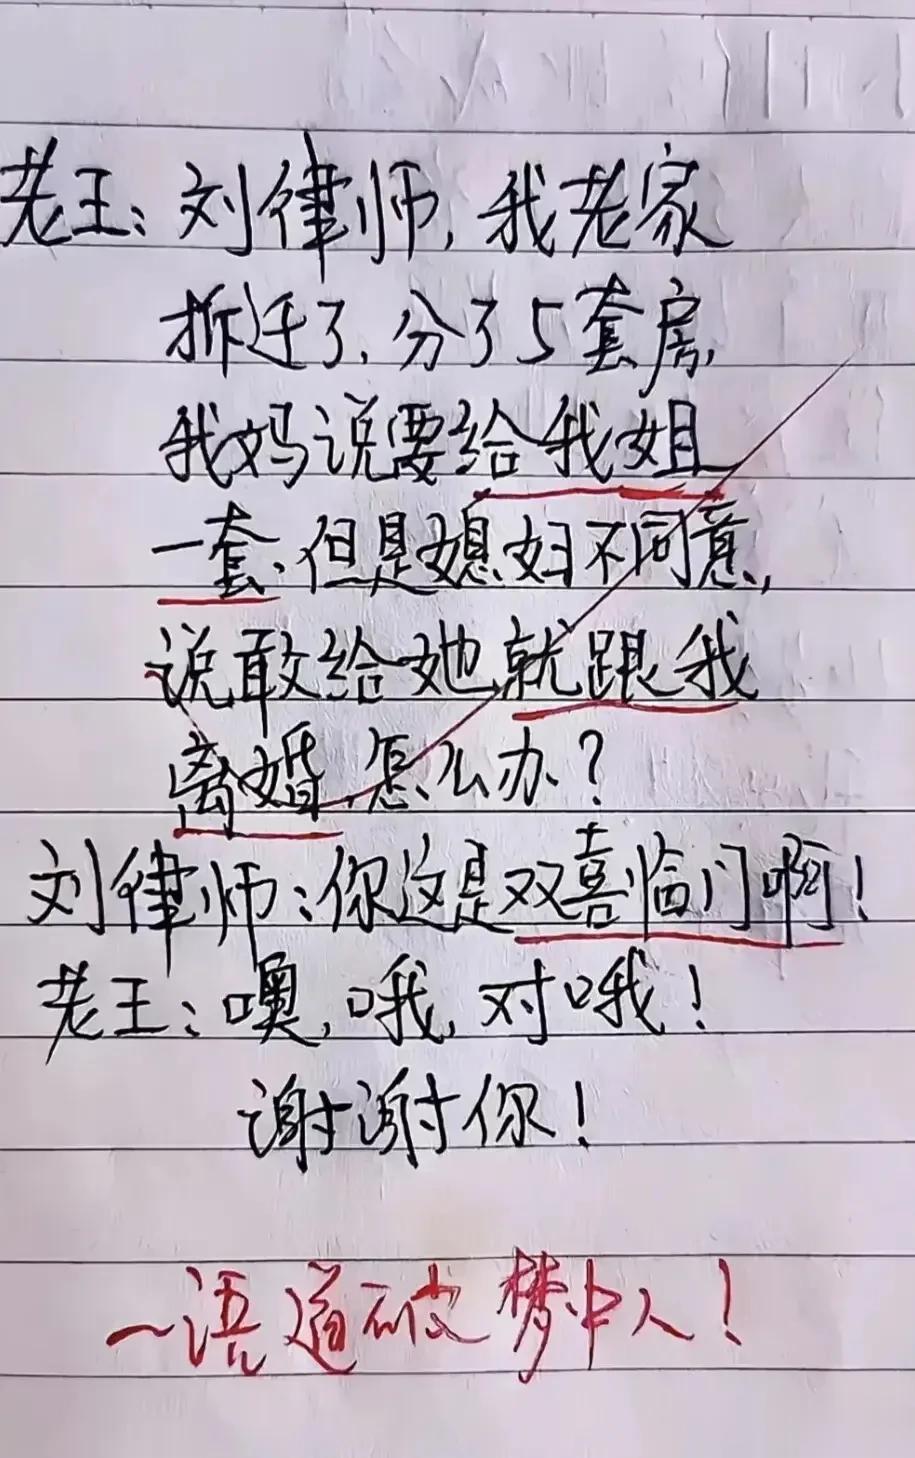 老王：刘律师，我老家
拆迁了，分了5套房，
我妈说要给我姐
一套，但是媳妇不同意，
说敢给她就跟我
离婚，怎么办？
刘律师：你这是双喜临门啊！
老王：噢，哦，对哦！
谢谢你！
一语道破梦中人！